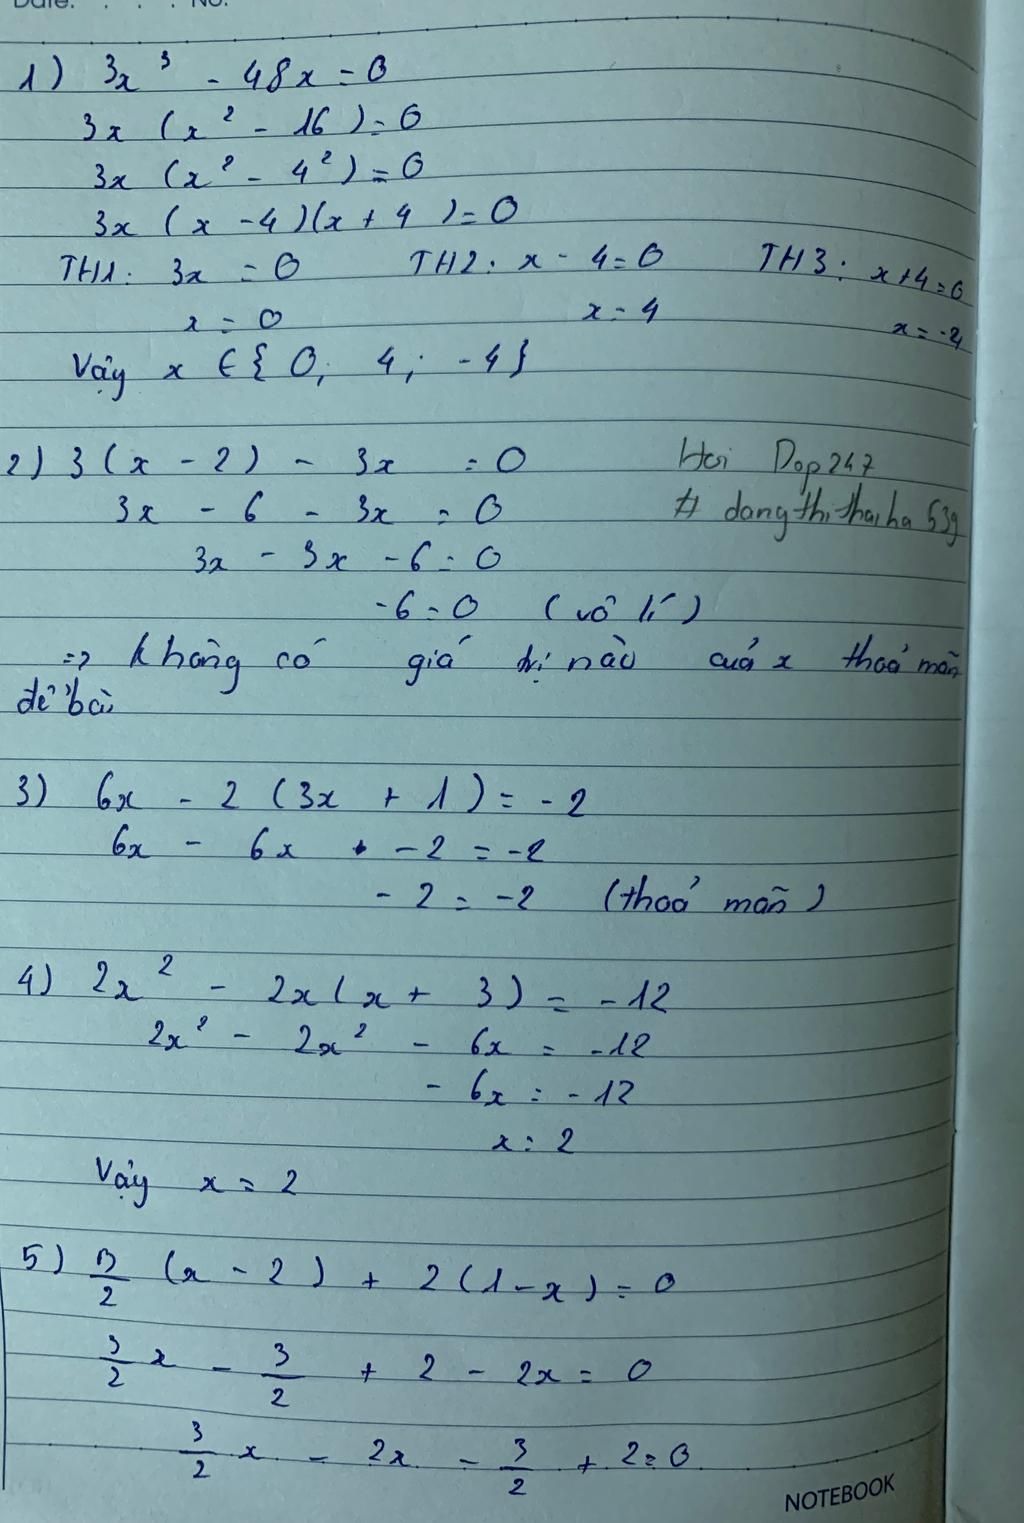 Date. . . . No.
1) 3x³ - 48x = 0
3x (x² - 16) = 0
3x (x² - 4²) = 0
3x (x - 4)(x + 4) = 0
TH1: 3x = 0 TH2: x - 4 = 0 TH3: x + 4 = 0
x = 0 x = 4 x = -4
Vậy x ∈ { 0; 4; -4 }
2) 3(x - 2) - 3x = 0 Hoi Dap247
3x - 6 - 3x = 0 # dangthithaiha 53g
3x - 3x - 6 = 0
-6 = 0 (vô lí)
=> không có giá trị nào cuả x thoả mãn
đề bài
3) 6x - 2 (3x + 1) = -2
6x - 6x - 2 = -2
- 2 = -2 (thoả mãn)
4) 2x² - 2x(x + 3) = -12
2x² - 2x² - 6x = -12
- 6x = -12
x = 2
Vậy x = 2
5) 3/2 (x - 2) + 2(1 - x) = 0
3/2 x - 3/2 + 2 - 2x = 0
3/2 x - 2x - 3/2 + 2 = 0
NOTEBOOK